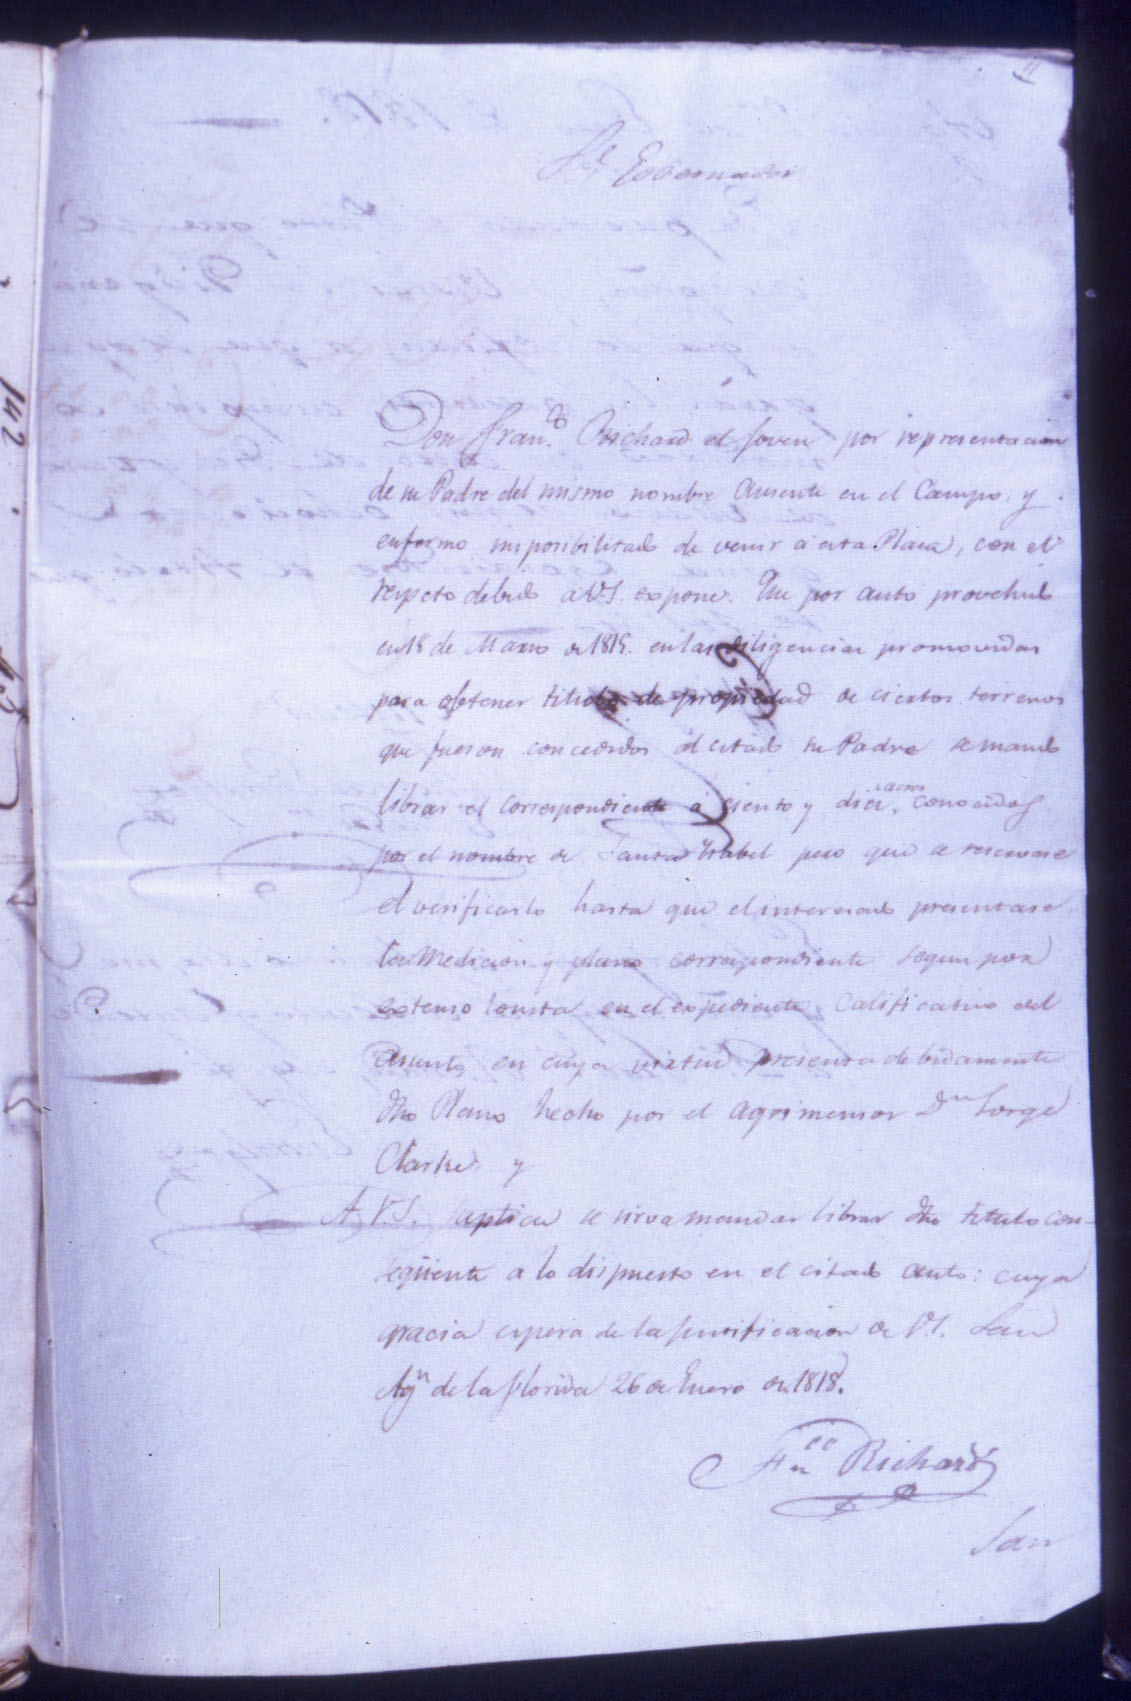 11
Sr. Gobernador
Don Franco. Richard el Joven por representacion
de su Padre del mismo nombre ausente en el Campo, y
enfermo imposibilitado de venir á esta Plaza, con el
respeto debido a V.S. expone. Que por auto provehido
en 18 de Marzo de 1815. en las diligencias promovidas
para obtener titulo de propiedad de ciertos terrenos
que fueron concedidos al citado su Padre se mando
librar el correspondiente á ciento y diez acres conocidos
por el nombre de Santa Ysabel pero que se reservase
el verificarlo hasta que el interesado presentase
la Medicion y plano correspondiente segun por
extenso consta en el expediente calificativo del
asunto, en cuya virtud presenta debidamente
dho Plano hecho por el agrimensor Dn Jorge
Clarke y
A V.S. suplica se sirva mandar librar dho titulo con-
seqüente a lo dispuesto en el citado auto: cuya
gracia espera de la justificacion de V.S. San
Agn de la Florida 26 de Enero de 1818.
Franco Richard
San
142